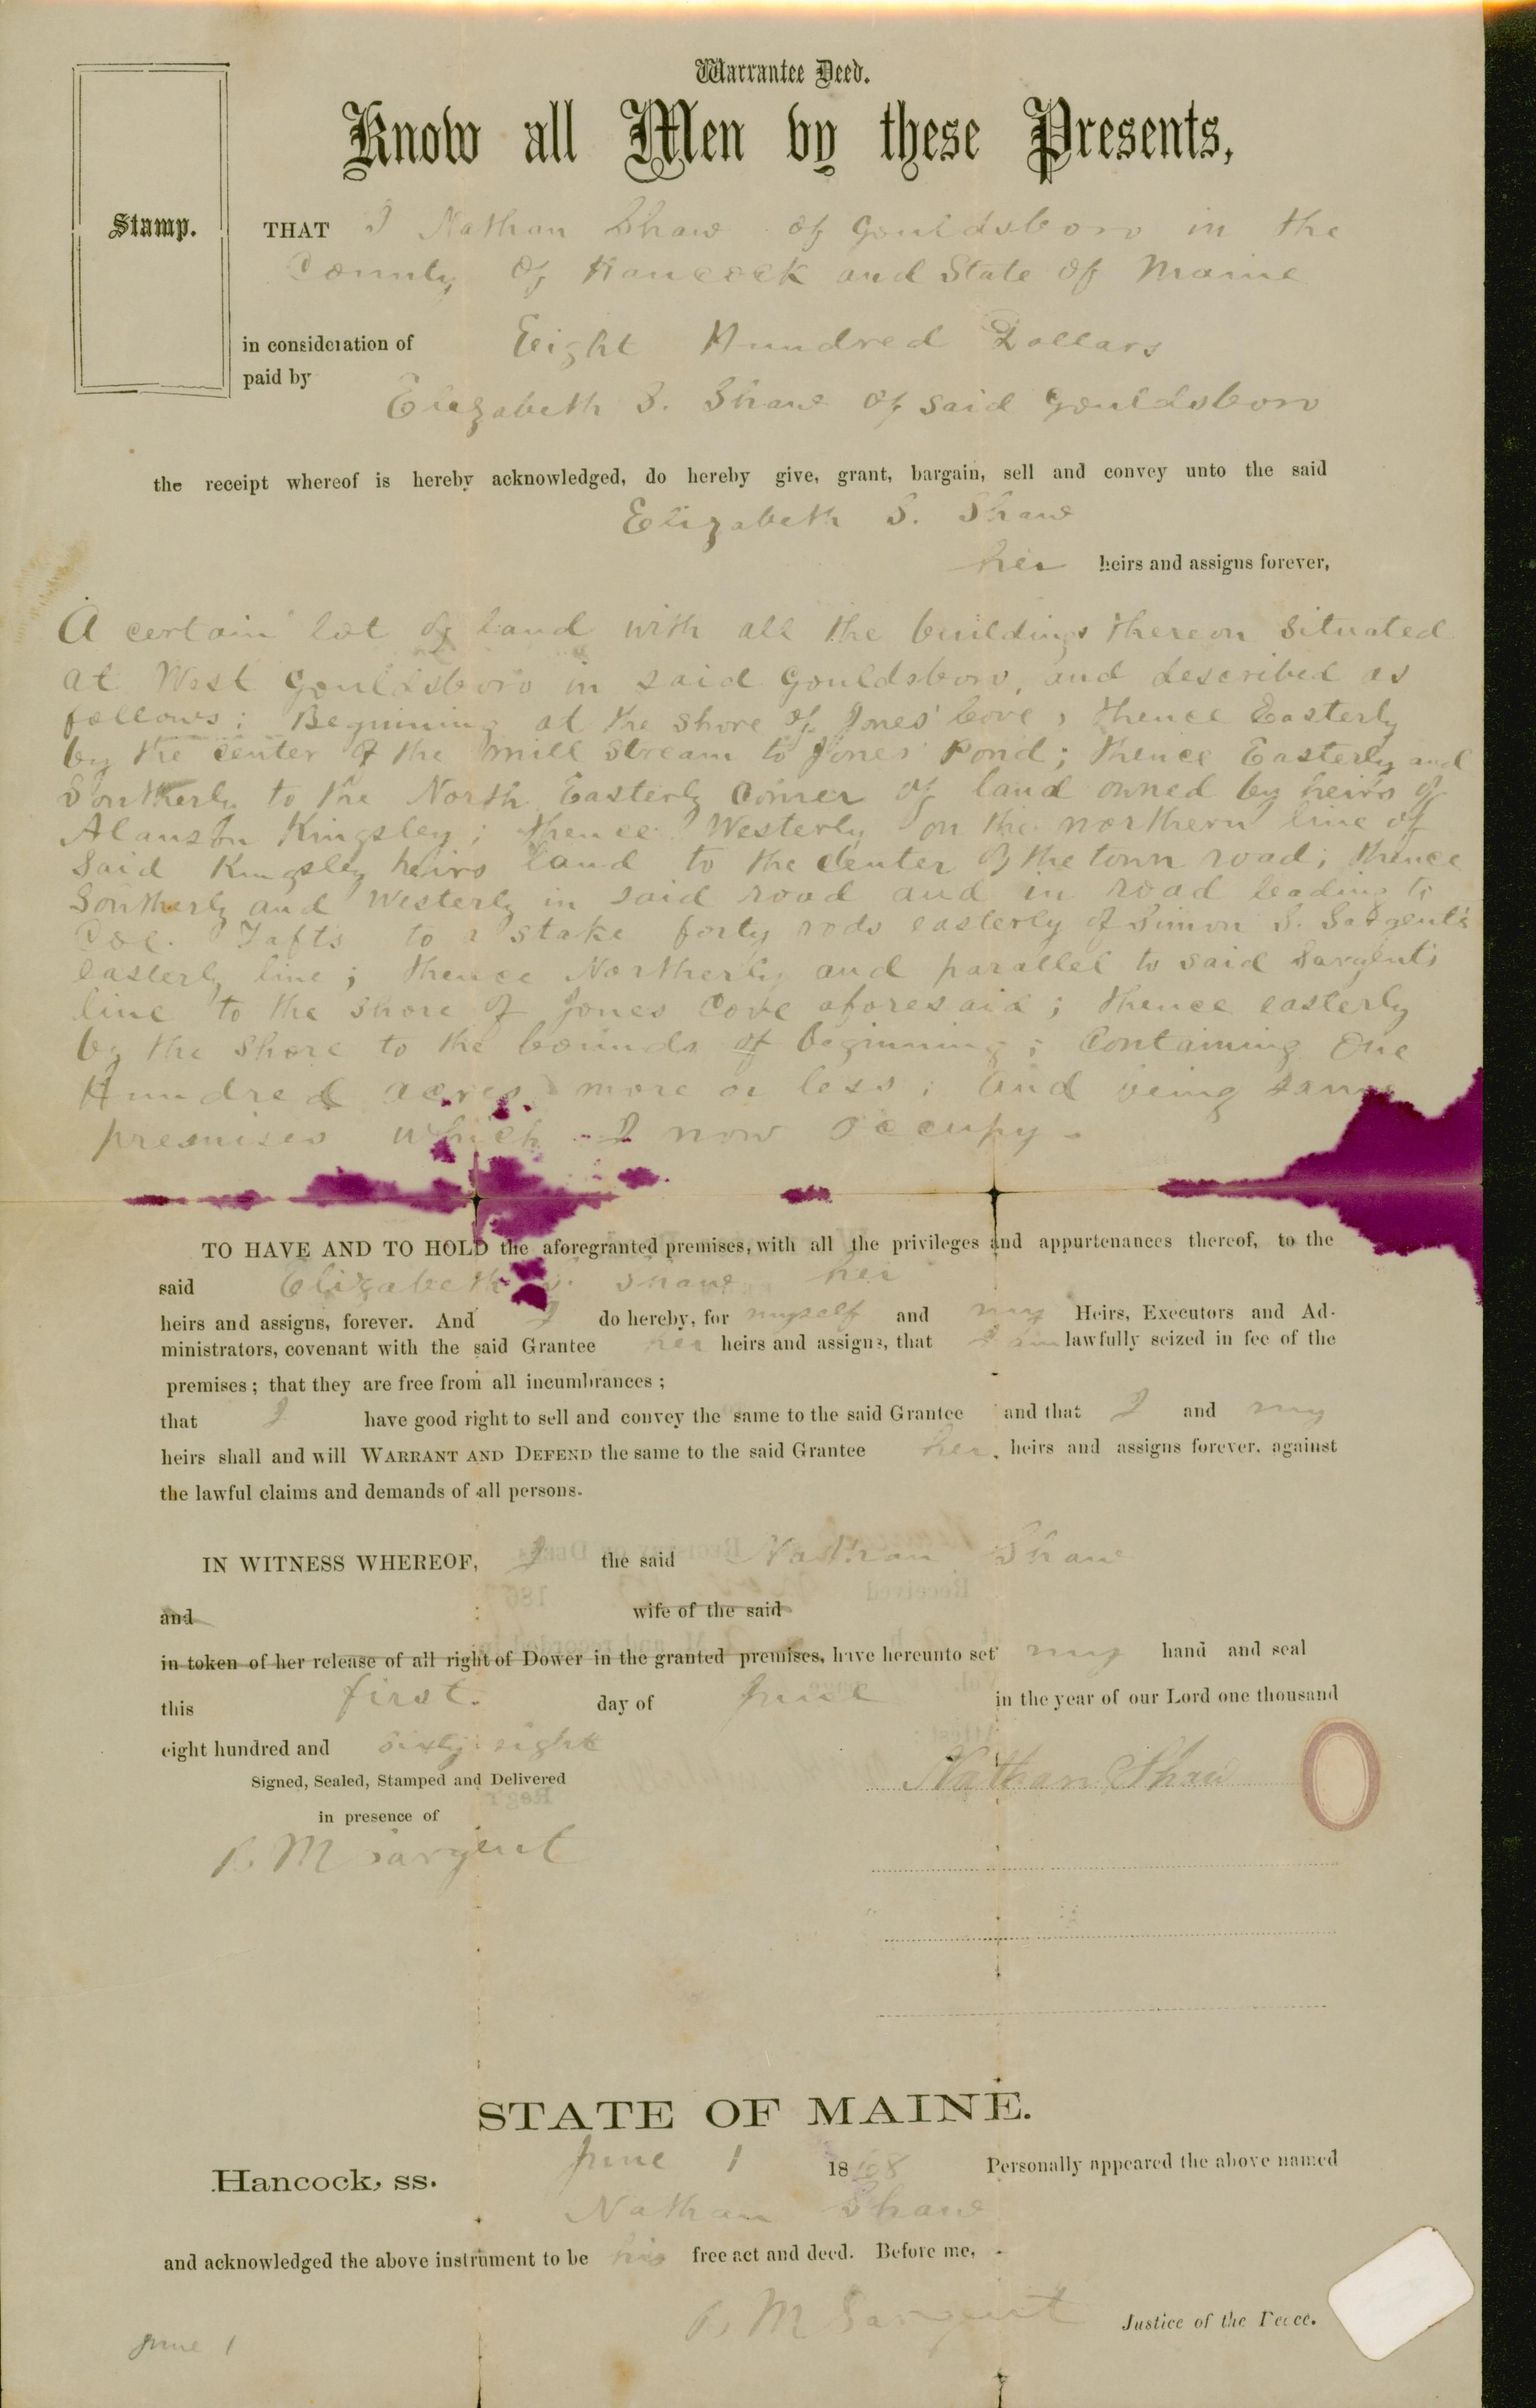 Warrantee Deed.
Know all Men by these Presents,
Stamp.
THAT I Nathan Shaw of Gouldsboro in the
County of Hancock and State of Maine
in consideration of Eight Hundred Dollars
paid by
Elizabeth S. Shaw of said Gouldsboro
the receipt whereof is hereby acknowledged, do hereby give, grant, bargain, sell and convey unto the said
Elizabeth S. Shaw
her heirs and assigns forever,
A certain lot of land with all the buildings thereon situated
at West Gouldsboro in said Gouldsboro, and described as
follows: Beginning at the shore of Jones' Cove, thence Easterly
by the center of the mill stream to Jones' Pond; thence Easterly and
Southerly to the North Easterly corner of land owned by heirs of
Alanson Kingsley; thence Westerly on the northern line of
said Kingsley heirs land to the center of the town road; thence
Southerly and Westerly in said road and in road leading to
Tafts to a stake forty rods easterly of Simon S. Sargent's
easterly line; thence Northerly and parallel to said Sargent's
line to the shore of Jones Cove aforesaid; thence easterly
by the shore to the bounds of beginning; containing One
Hundred acres more or less; and being same
premises which I now occupy.
TO HAVE AND TO HOLD the aforegranted premises, with all the privileges and appurtenances thereof, to the
said Elizabeth S. Shaw her
heirs and assigns, forever. And I do hereby, for myself and my Heirs, Executors and Ad-
ministrators, covenant with the said Grantee her heirs and assigns, that I am lawfully seized in fee of the
premises; that they are free from all incumbrances;
that I have good right to sell and convey the same to the said Grantee and that I and my
heirs shall and will WARRANT AND DEFEND the same to the said Grantee her, heirs and assigns forever, against
the lawful claims and demands of all persons.
IN WITNESS WHEREOF, I the said Nathan Shaw
and wife of the said
in token of her release of all right of Dower in the granted premises, have hereunto set my hand and seal
this first day of June in the year of our Lord one thousand
eight hundred and sixty eight
Signed, Sealed, Stamped and Delivered
in presence of
Nathan Shaw
M Sargent
STATE OF MAINE.
Hancock, ss. June 1 1868 Personally appeared the above named
Nathan Shaw
and acknowledged the above instrument to be his free act and deed. Before me,
M Sargent Justice of the Peace.
June 1